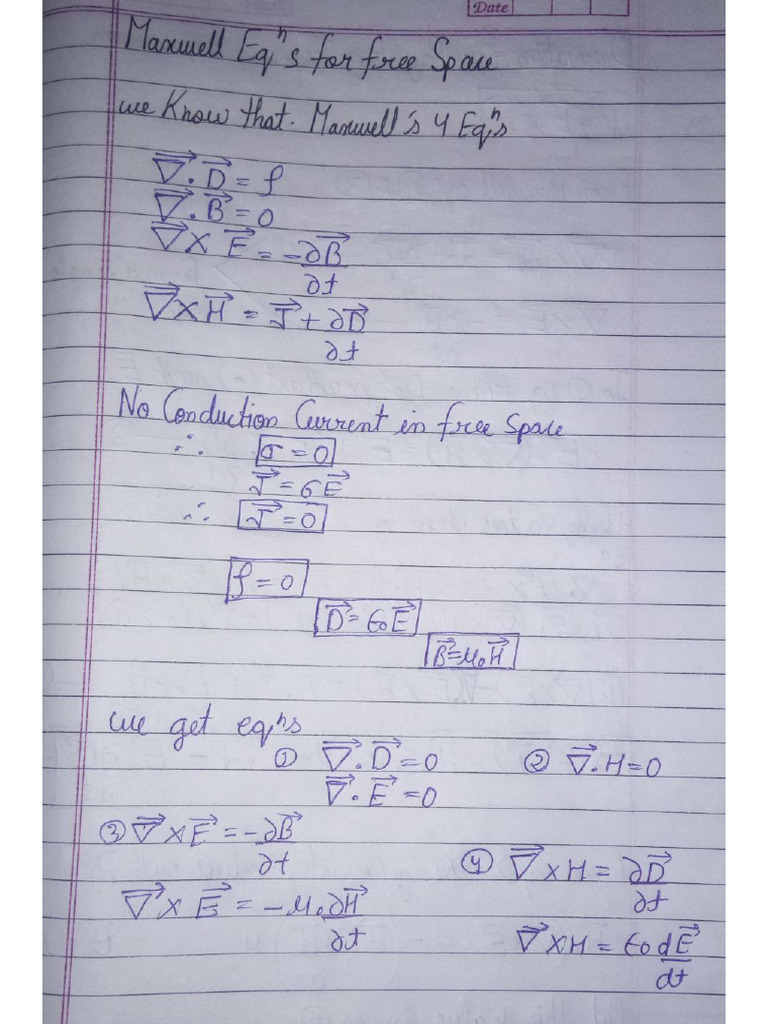 Date
Maxwell Eqⁿs for free Space
we Know that. Maxwell's 4 Eqⁿs
∇⃗.D⃗ = ρ
∇⃗.B⃗ = 0
∇⃗ × E⃗ = -∂B⃗/∂t
∇⃗ × H⃗ = J⃗ + ∂D⃗/∂t
No Conduction Current in free Space
∴ σ = 0
J⃗ = σE⃗
∴ J⃗ = 0
ρ = 0
D⃗ = ϵ₀E⃗
B⃗ = μ₀H⃗
we get eqⁿs
① ∇⃗.D⃗ = 0 ② ∇⃗.H = 0
∇⃗.E⃗ = 0
③ ∇⃗ × E⃗ = -∂B⃗/∂t
④ ∇⃗ × H = ∂D⃗/∂t
∇⃗ × E⃗ = -μ₀∂H⃗/∂t
∇⃗ × H = ϵ₀dE⃗/dt